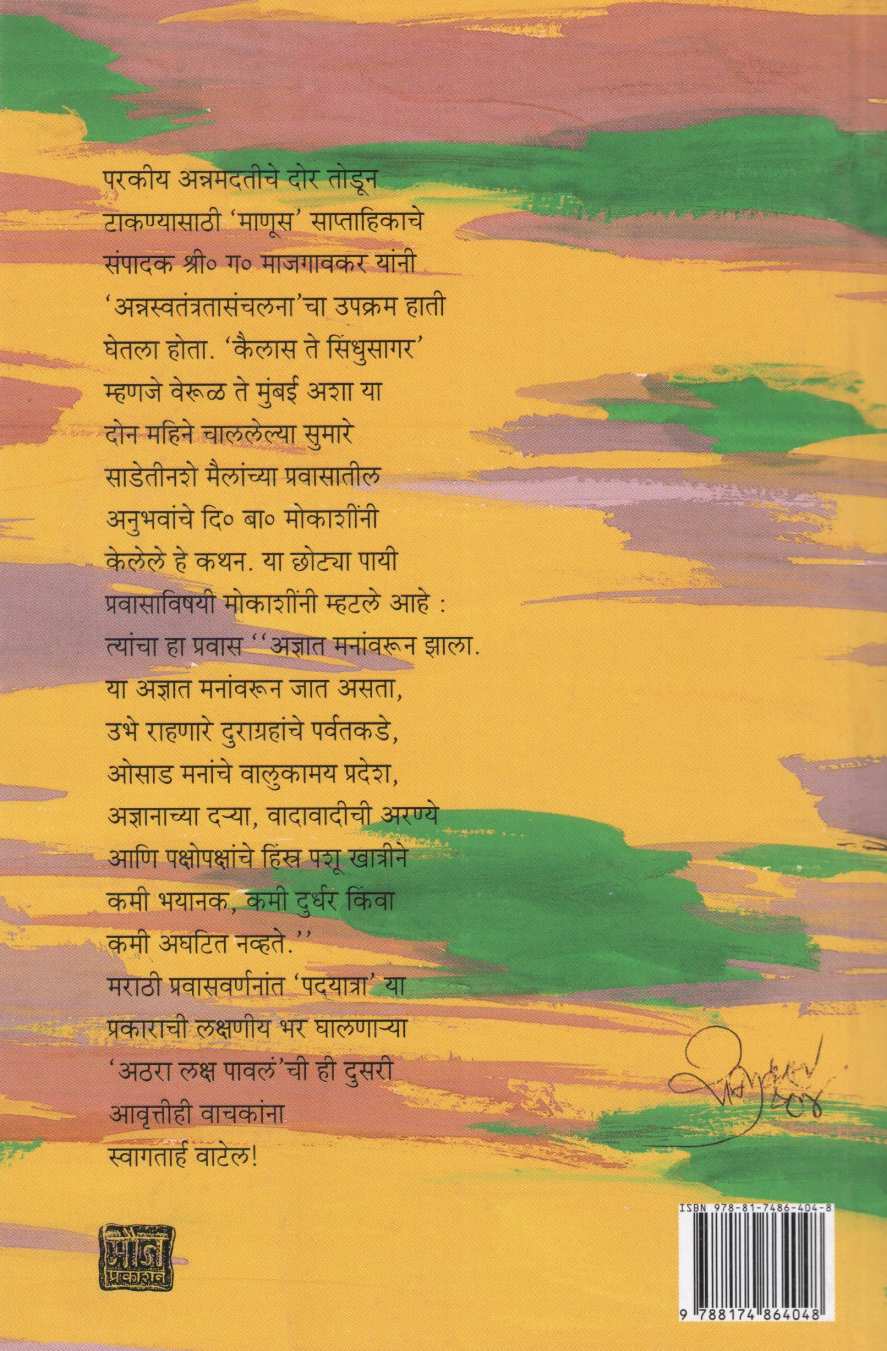 परकीय अन्नमदतीचे दोर तोडून
टाकण्यासाठी ‘माणूस’ साप्ताहिकाचे
संपादक श्री० ग० माजगावकर यांनी
‘अन्नस्वतंत्रतासंचलना’चा उपक्रम हाती
घेतला होता. ‘कैलास ते सिंधुसागर’
म्हणजे वेरूळ ते मुंबई अशा या
दोन महिने चाललेल्या सुमारे
साडेतीनशे मैलांच्या प्रवासातील
अनुभवांचे दि० बा० मोकाशींनी
केलेले हे कथन. या छोट्या पायी
प्रवासाविषयी मोकाशींनी म्हटले आहे :
त्यांचा हा प्रवास ‘‘अज्ञात मनांवरून झाला.
या अज्ञात मनांवरून जात असता,
उभे राहणारे दुराग्रहांचे पर्वतकडे,
ओसाड मनांचे वालुकामय प्रदेश,
अज्ञानाच्या दऱ्या, वादावादीची अरण्ये
आणि पक्षोपक्षांचे हिंस्र पशू खात्रीने
कमी भयानक, कमी दुर्धर किंवा
कमी अघटित नव्हते.’’
मराठी प्रवासवर्णनांत ‘पदयात्रा’ या
प्रकाराची लक्षणीय भर घालणाऱ्या
‘अठरा लक्ष पावलं’ची ही दुसरी
आवृत्तीही वाचकांना
स्वागतार्ह वाटेल!
मौज
प्रकाशन
ISBN 978-81-7486-404-8
9 788174 864048